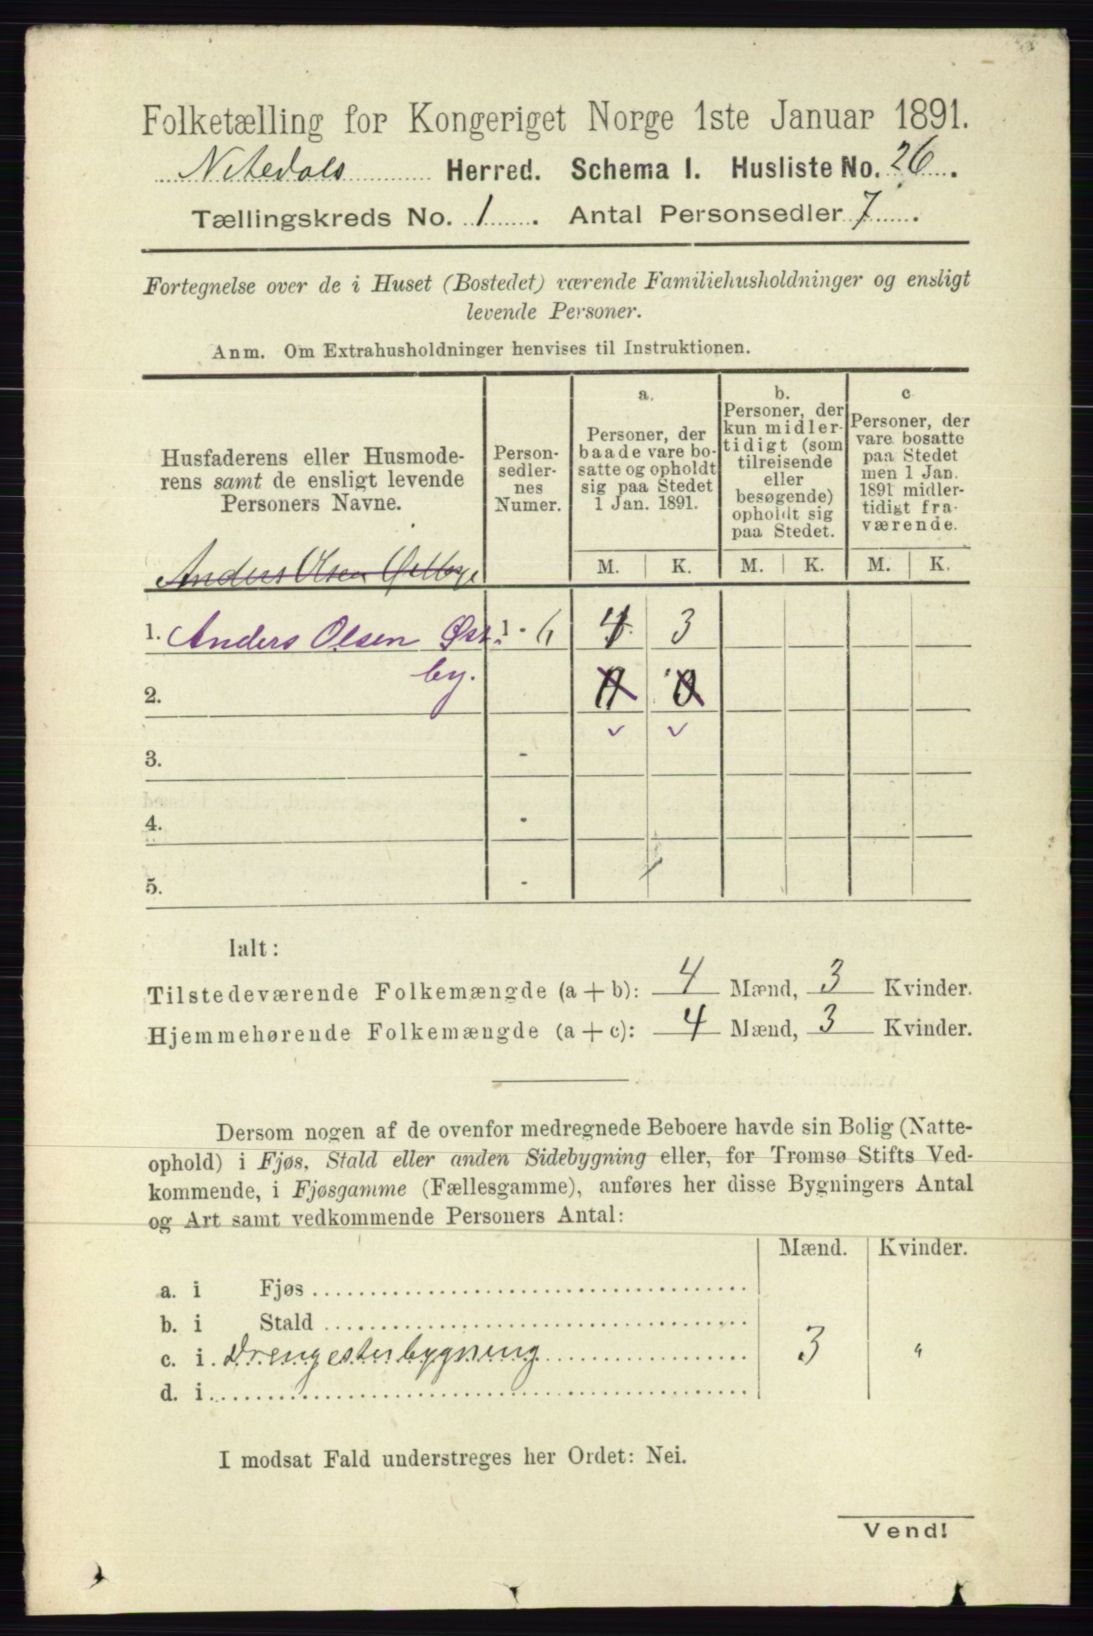 Folketælling for Kongeriget Norge 1ste Januar 1891.
Nitedals Herred. Schema I. Husliste No. 26.
Tællingskreds No. 1. Antal Personsedler 7.
Fortegnelse over de i Huset (Bostedet) værende Familiehusholdninger og ensligt
levende Personer.
Anm. Om Extrahusholdninger henvises til Instruktionen.
Husfaderens eller Husmode-
rens samt de ensligt levende
Personers Navne.
Person-
sedler-
nes
Numer.
a.
Personer, der
baade vare bo-
satte og opholdt
sig paa Stedet
1 Jan. 1891.
b.
Personer, der
kun midler-
tidigt (som
tilreisende
eller
besøgende)
opholdt sig
paa Stedet.
c
Personer, der
vare bosatte
paa Stedet
men 1 Jan.
1891 midler-
tidigt fra-
værende.
M. K. M. K. M. K.
Anders Olsen
1. Anders Olsen Øst- 1 - 4 3
by.
2. 0
3. -
4. -
5. -
Ialt:
Tilstedeværende Folkemængde (a + b): 4 Mænd, 3 Kvinder.
Hjemmehørende Folkemængde (a + c): 4 Mænd, 3 Kvinder.
Dersom nogen af de ovenfor medregnede Beboere havde sin Bolig (Natte-
ophold) i Fjøs, Stald eller anden Sidebygning eller, for Tromsø Stifts Ved-
kommende, i Fjøsgamme (Fællesgamme), anføres her disse Bygningers Antal
og Art samt vedkommende Personers Antal:
Mænd. Kvinder.
a. i Fjøs
b. i Stald
c. i Drengestubygning 3 "
d. i
I modsat Fald understreges her Ordet: Nei.
Vend!